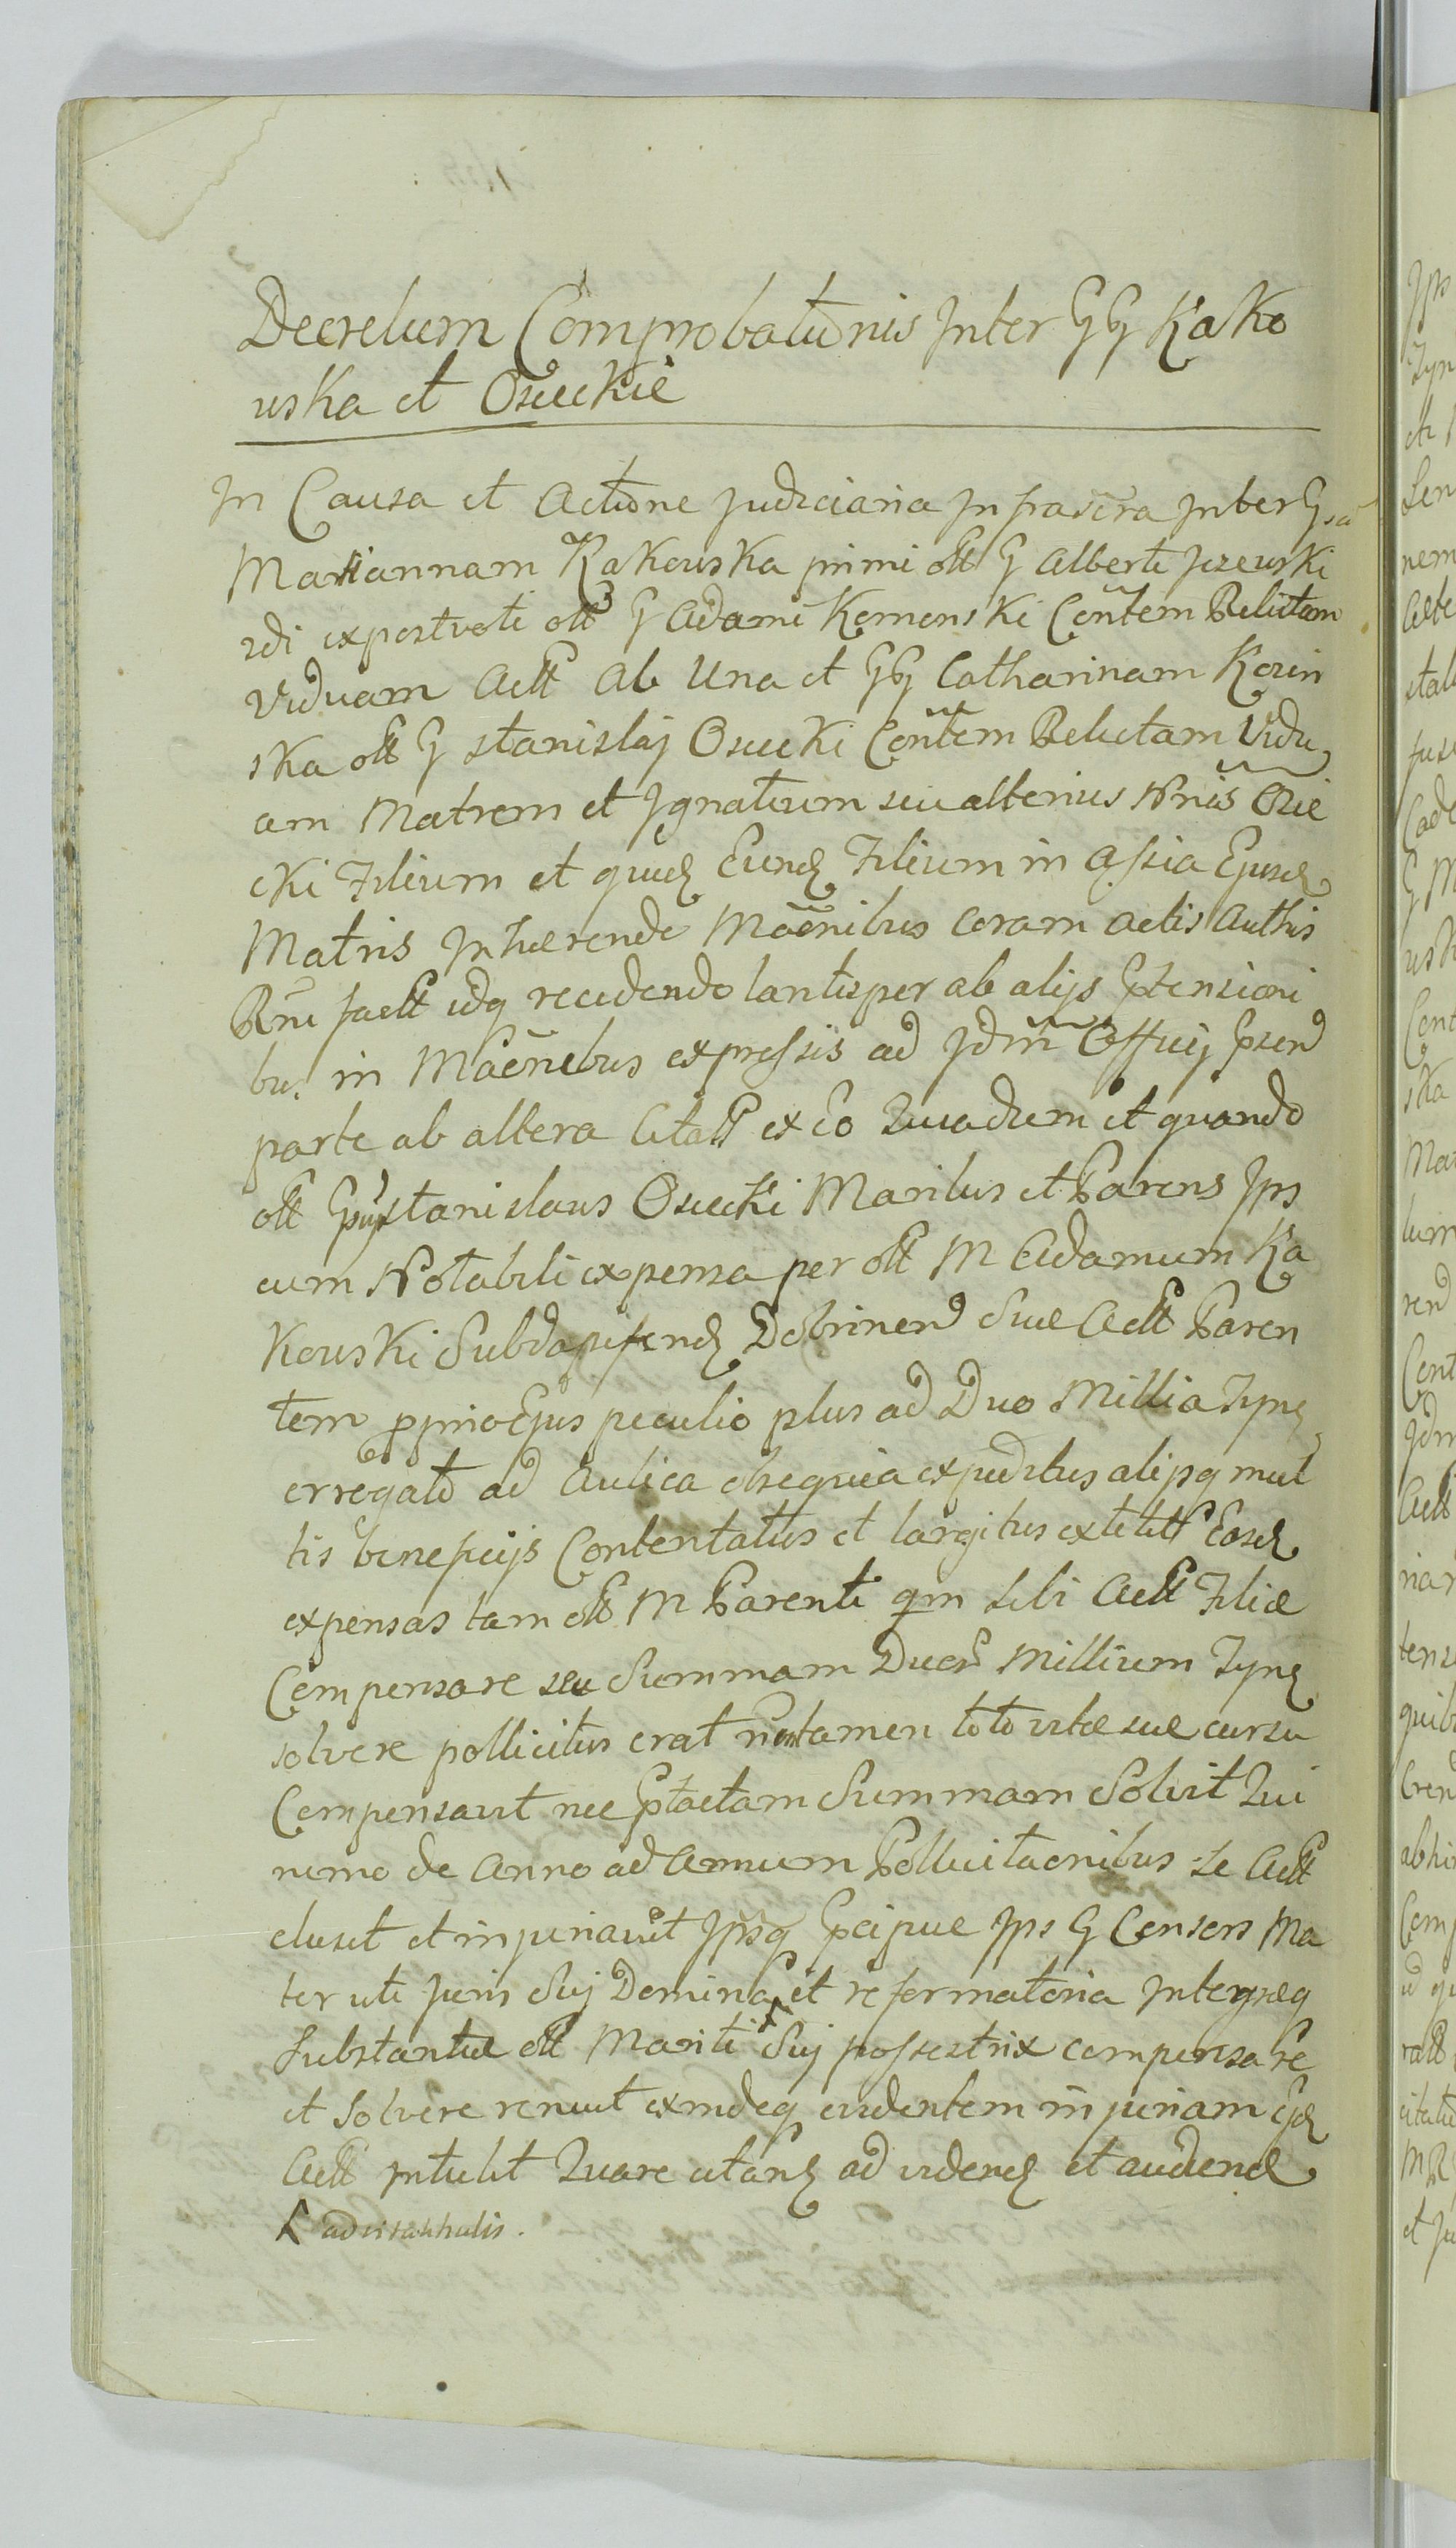 Decretum Comprobationis Inter GG Kako
uska et Osieckie
In Causa et Actione Judiciaria Infrascra Inter G
Mariannam Kakouska primi olt G Alberti Jezeuski
2di expostvoti olt G Adami Komenski Contem Relictam
Viduam Actt Ab Una et GG Catharinam Kozin
ska olt G Stanislaj Osiecki Contem Relictam Vidu
am Matrem et Ignatium seu alterius Nnis Osie
cki Filium et quid Eund Filium in Assia Ejusd
Matris Inhærendo Maonibus coram Actis Authis
Rne factt idq recedendo tantisper ab alijs Extensioni
bus in Maonibus expressis ad Idm Officij Psend
parte ab altera Citatt ex Eo Quiadum et quando
olt Stanislaus Osiecki Maritus et Parens Ips
cum Notabili expensa per olt M Adamum Ka
kouski Subdapiferid Dobrinen Suæ Actt Paren
tem pprio Ejus peculio plus ad Duo Millia Tynf
errogato ad Aulica obsequia expeditus alijsq mul
tis beneficijs Contentatus et largitus extitit Eosd
expensas tam olt M Parenti qm Sibi Actt Filiæ
Compensare seu Summam Duor Millium Tynf
solvere pollicitus erat non tamen toto vitæ suæ cursu
Compensavit nec Ptactam Summam Solvit Qui
nimo de Anno ad Annum Pollicitaonibus se Actt
elusit et injuriavit Ipsq Pcipue Ips G Consors Ma
ter uti Juris Sui Domina et reformatoria Integræq
Substantiæ olt Mariti Suj possestrix compensare
et Solvere renuit exindeq evidentem injuriam Ejd
Actt intulit Quare citand ad videnð et audiend
L advitalitatis.